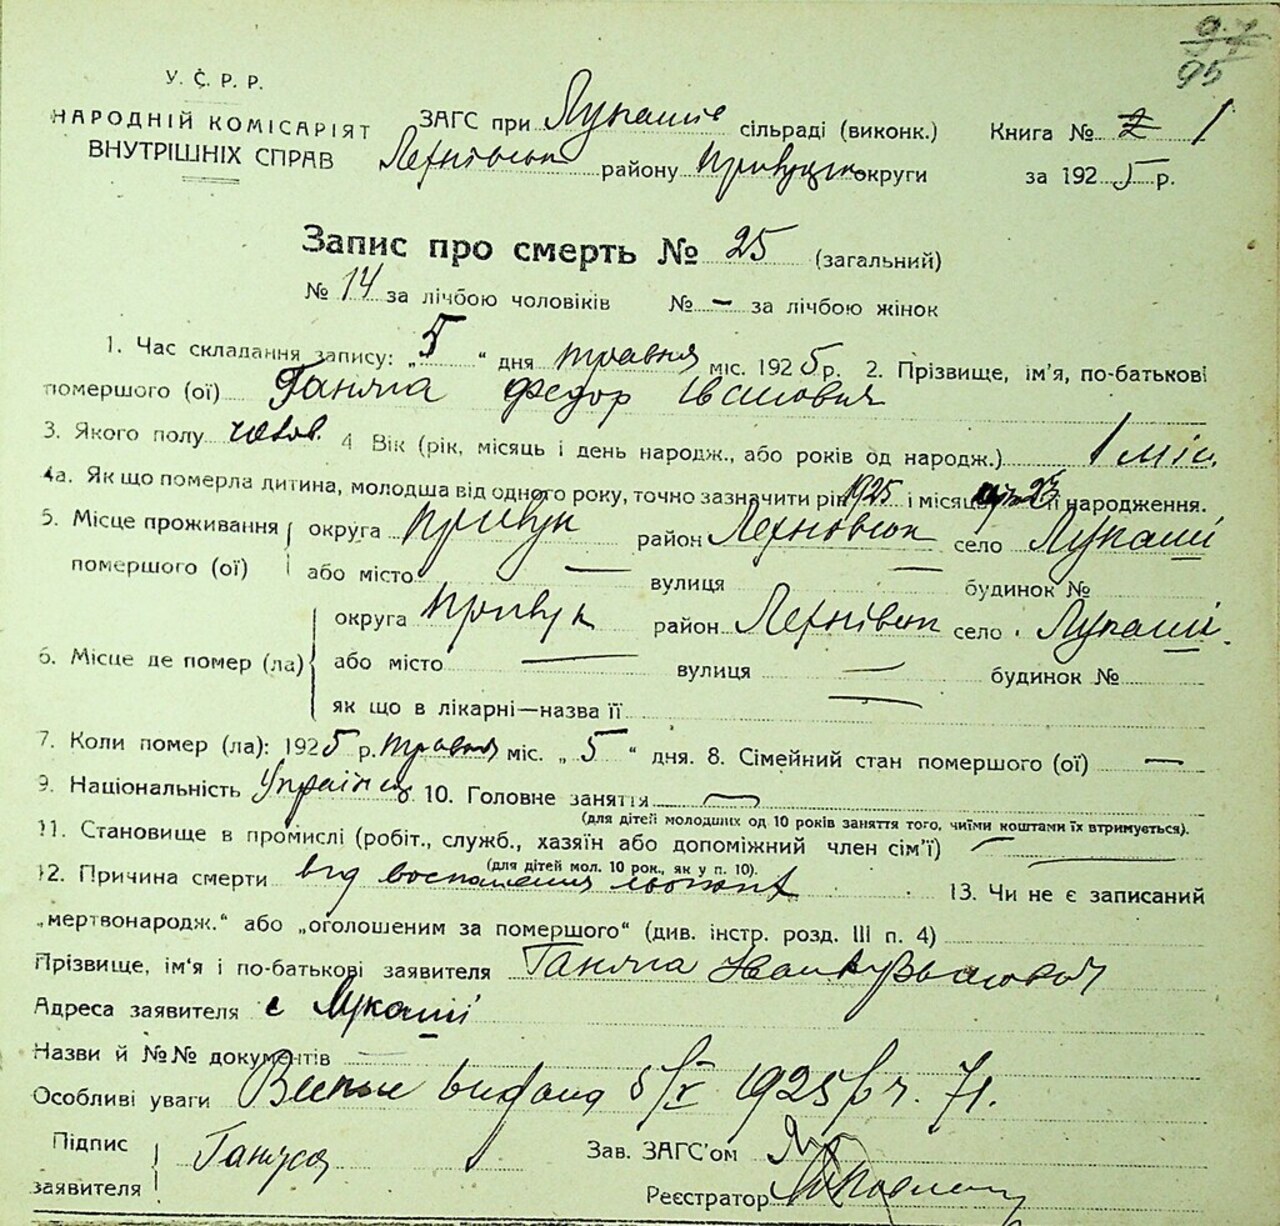 97
95
У. С. Р. Р.
НАРОДНІЙ КОМІСАРІЯТ
ВНУТРІШНІХ СПРАВ
ЗАГС при Лукаші сільраді (виконк.) Книга № 2 1
району округи за 1925 р.
Запис про смерть № 25 (загальний)
№ 14 за лічбою чоловіків № — за лічбою жінок
1. Час складання запису: „5“ дня травня міс. 1925 р. 2. Прізвище, ім'я, по-батькові
помершого (ої) Ганжа Федор Іванович
3. Якого полу чолов. 4 Вік (рік, місяць і день народж., або років од народж.) 1 міс.
4а. Як що померла дитина, молодша від одного року, точно зазначити рік 1925 і місяць 23 її народження.
5. Місце проживання помершого (ої) округа Прилук район село Лукаші
або місто — вулиця — будинок №
6. Місце де помер (ла) округа Прилук район село Лукаші.
або місто — вулиця — будинок №
як що в лікарні—назва її —
7. Коли помер (ла): 1925 р. травня міс. „5“ дня. 8. Сімейний стан помершого (ої) —
9. Національність 10. Головне заняття —
(для дітей молодших од 10 років заняття того, чиїми коштами їх втримується).
11. Становище в промислі (робіт., служб., хазяїн або допоміжний член сім'ї) —
(для дітей мол. 10 рок., як у п. 10).
12. Причина смерти від 13. Чи не є записаний
„мертвонародж.“ або „оголошеним за помершого“ (див. інстр. розд. III п. 4)
Прізвище, ім'я і по-батькові заявителя Ганжа Іван
Адреса заявителя с Лукаші
Назви й №№ документів —
Особливі уваги видана 5/V 1925 р ч. 71.
Підпис заявителя
Зав. ЗАГС'ом
Реєстратор